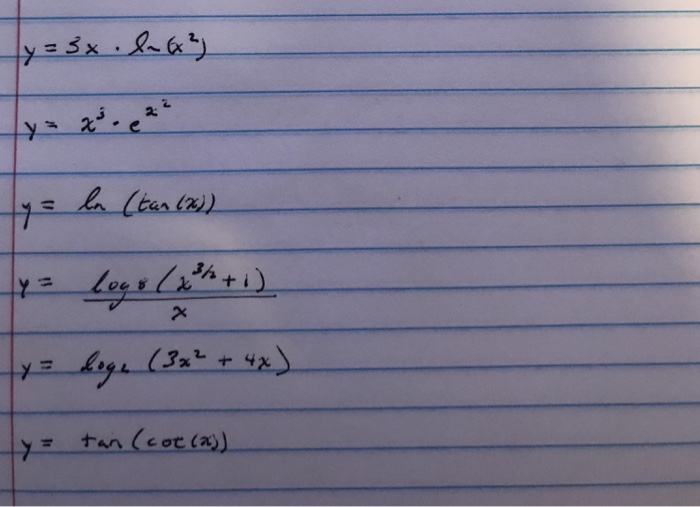 y = 3x · ln(x²)
y = x³ · e^x²
y = ln (tan(x))
y = log₈(x^3/2 + 1)
x
y = log₂ (3x² + 4x)
y = tan(cot(x))